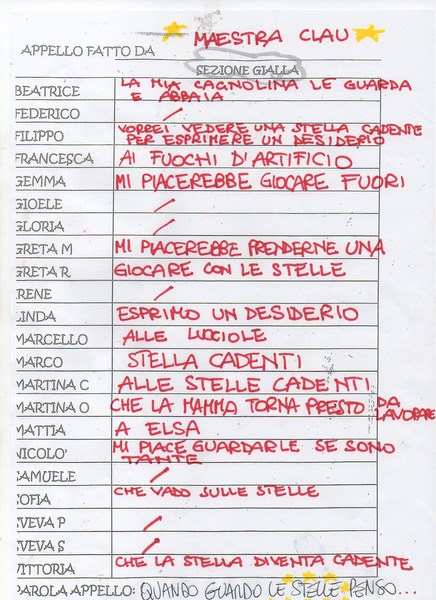 APPELLO FATTO DA MAESTRA CLAU
SEZIONE GIALLA
BEATRICE LA MIA CAGNOLINA LE GUARDA
E ABBAIA
FEDERICO /
FILIPPO VORREI VEDERE UNA STELLA CADENTE
PER ESPRIMERE UN DESIDERIO
FRANCESCA AI FUOCHI D'ARTIFICIO
GEMMA MI PIACEREBBE GIOCARE FUORI
GIOELE /
GLORIA /
GRETA M MI PIACEREBBE PRENDERNE UNA
GRETA R GIOCARE CON LE STELLE
IRENE /
LINDA ESPRIMO UN DESIDERIO
MARCELLO ALLE LUCCIOLE
MARCO STELLA CADENTI
MARTINA C ALLE STELLE CADENTI
MARTINA O CHE LA MAMMA TORNA PRESTO DA
LAVORARE
MATTIA A ELSA
NICOLO' MI PIACE GUARDARLE SE SONO
TANTE
SAMUELE /
SOFIA CHE VADO SULLE STELLE
SVEVA P /
SVEVA S /
VITTORIA CHE LA STELLA DIVENTA CADENTE
PAROLA APPELLO: QUANDO GUARDO LE STELLE PENSO...